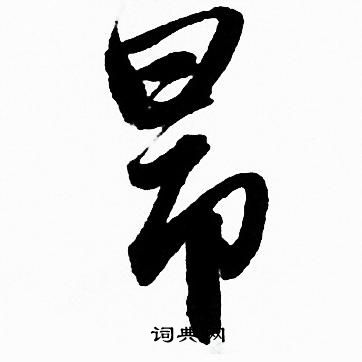 昂
词典网